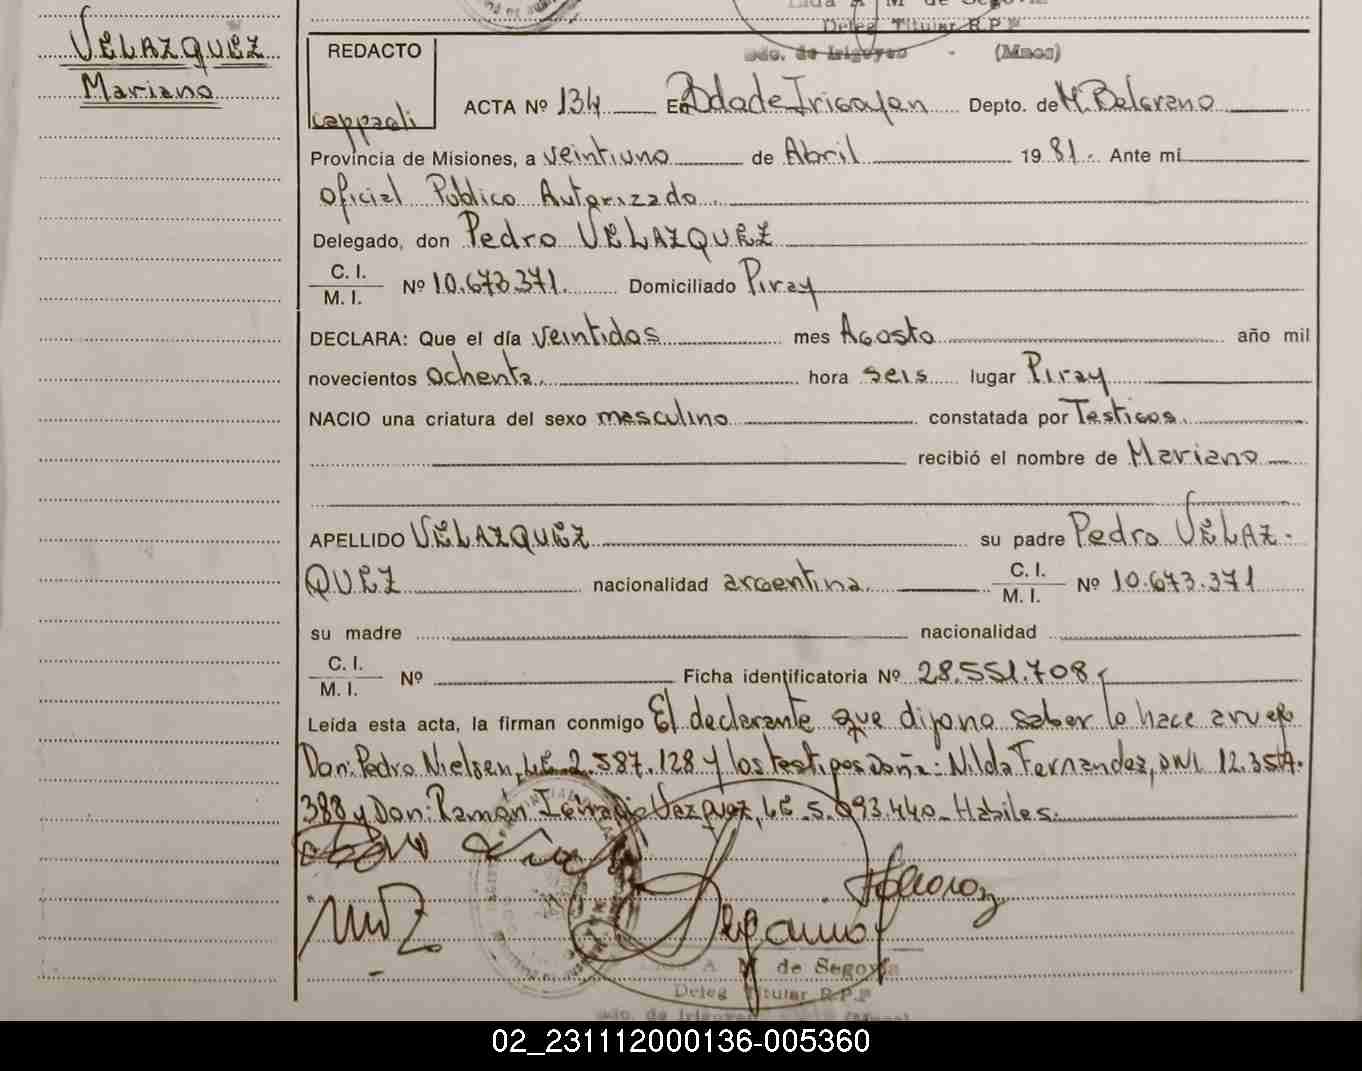 Lida A M de Segovia
Deleg Titular R.P.P
Bdo. de Irigoyen - (Mnes)
VELAZQUEZ
Mariano
REDACTO
cappaoli
ACTA Nº 134 En Bdo de Irigoyen Depto. de M. Belgrano
Provincia de Misiones, a veintiuno de Abril 1981.- Ante mí
Oficial Publico Autorizado
Delegado, don Pedro VELAZQUEZ
C. I.
M. I. Nº 10.673.371. Domiciliado Piray
DECLARA: Que el día veintidos mes Agosto año mil
novecientos ochenta. hora seis lugar Piray
NACIO una criatura del sexo masculino constatada por Testigos.
recibió el nombre de Mariano
APELLIDO VELAZQUEZ su padre Pedro VELAZ-
QUEZ nacionalidad argentina. C. I.
M. I. Nº 10.673.371
su madre nacionalidad
C. I.
M. I. Nº Ficha identificatoria Nº 28.551.708
Leída esta acta, la firman conmigo El declarante que dijo no saber lo hace a ruego
Don: Pedro Nielsen, L.E. 2.587.128 y los testigos Doña: Nilda Fernandez, DNI. 12.357.
388 y Don: Ramón Vazquez, L.E. 5.093.440. Hábiles.
A M de Segovia
Deleg Titular R.P.P
Bdo. de Irigoyen (Mnes)
02_231112000136-005360